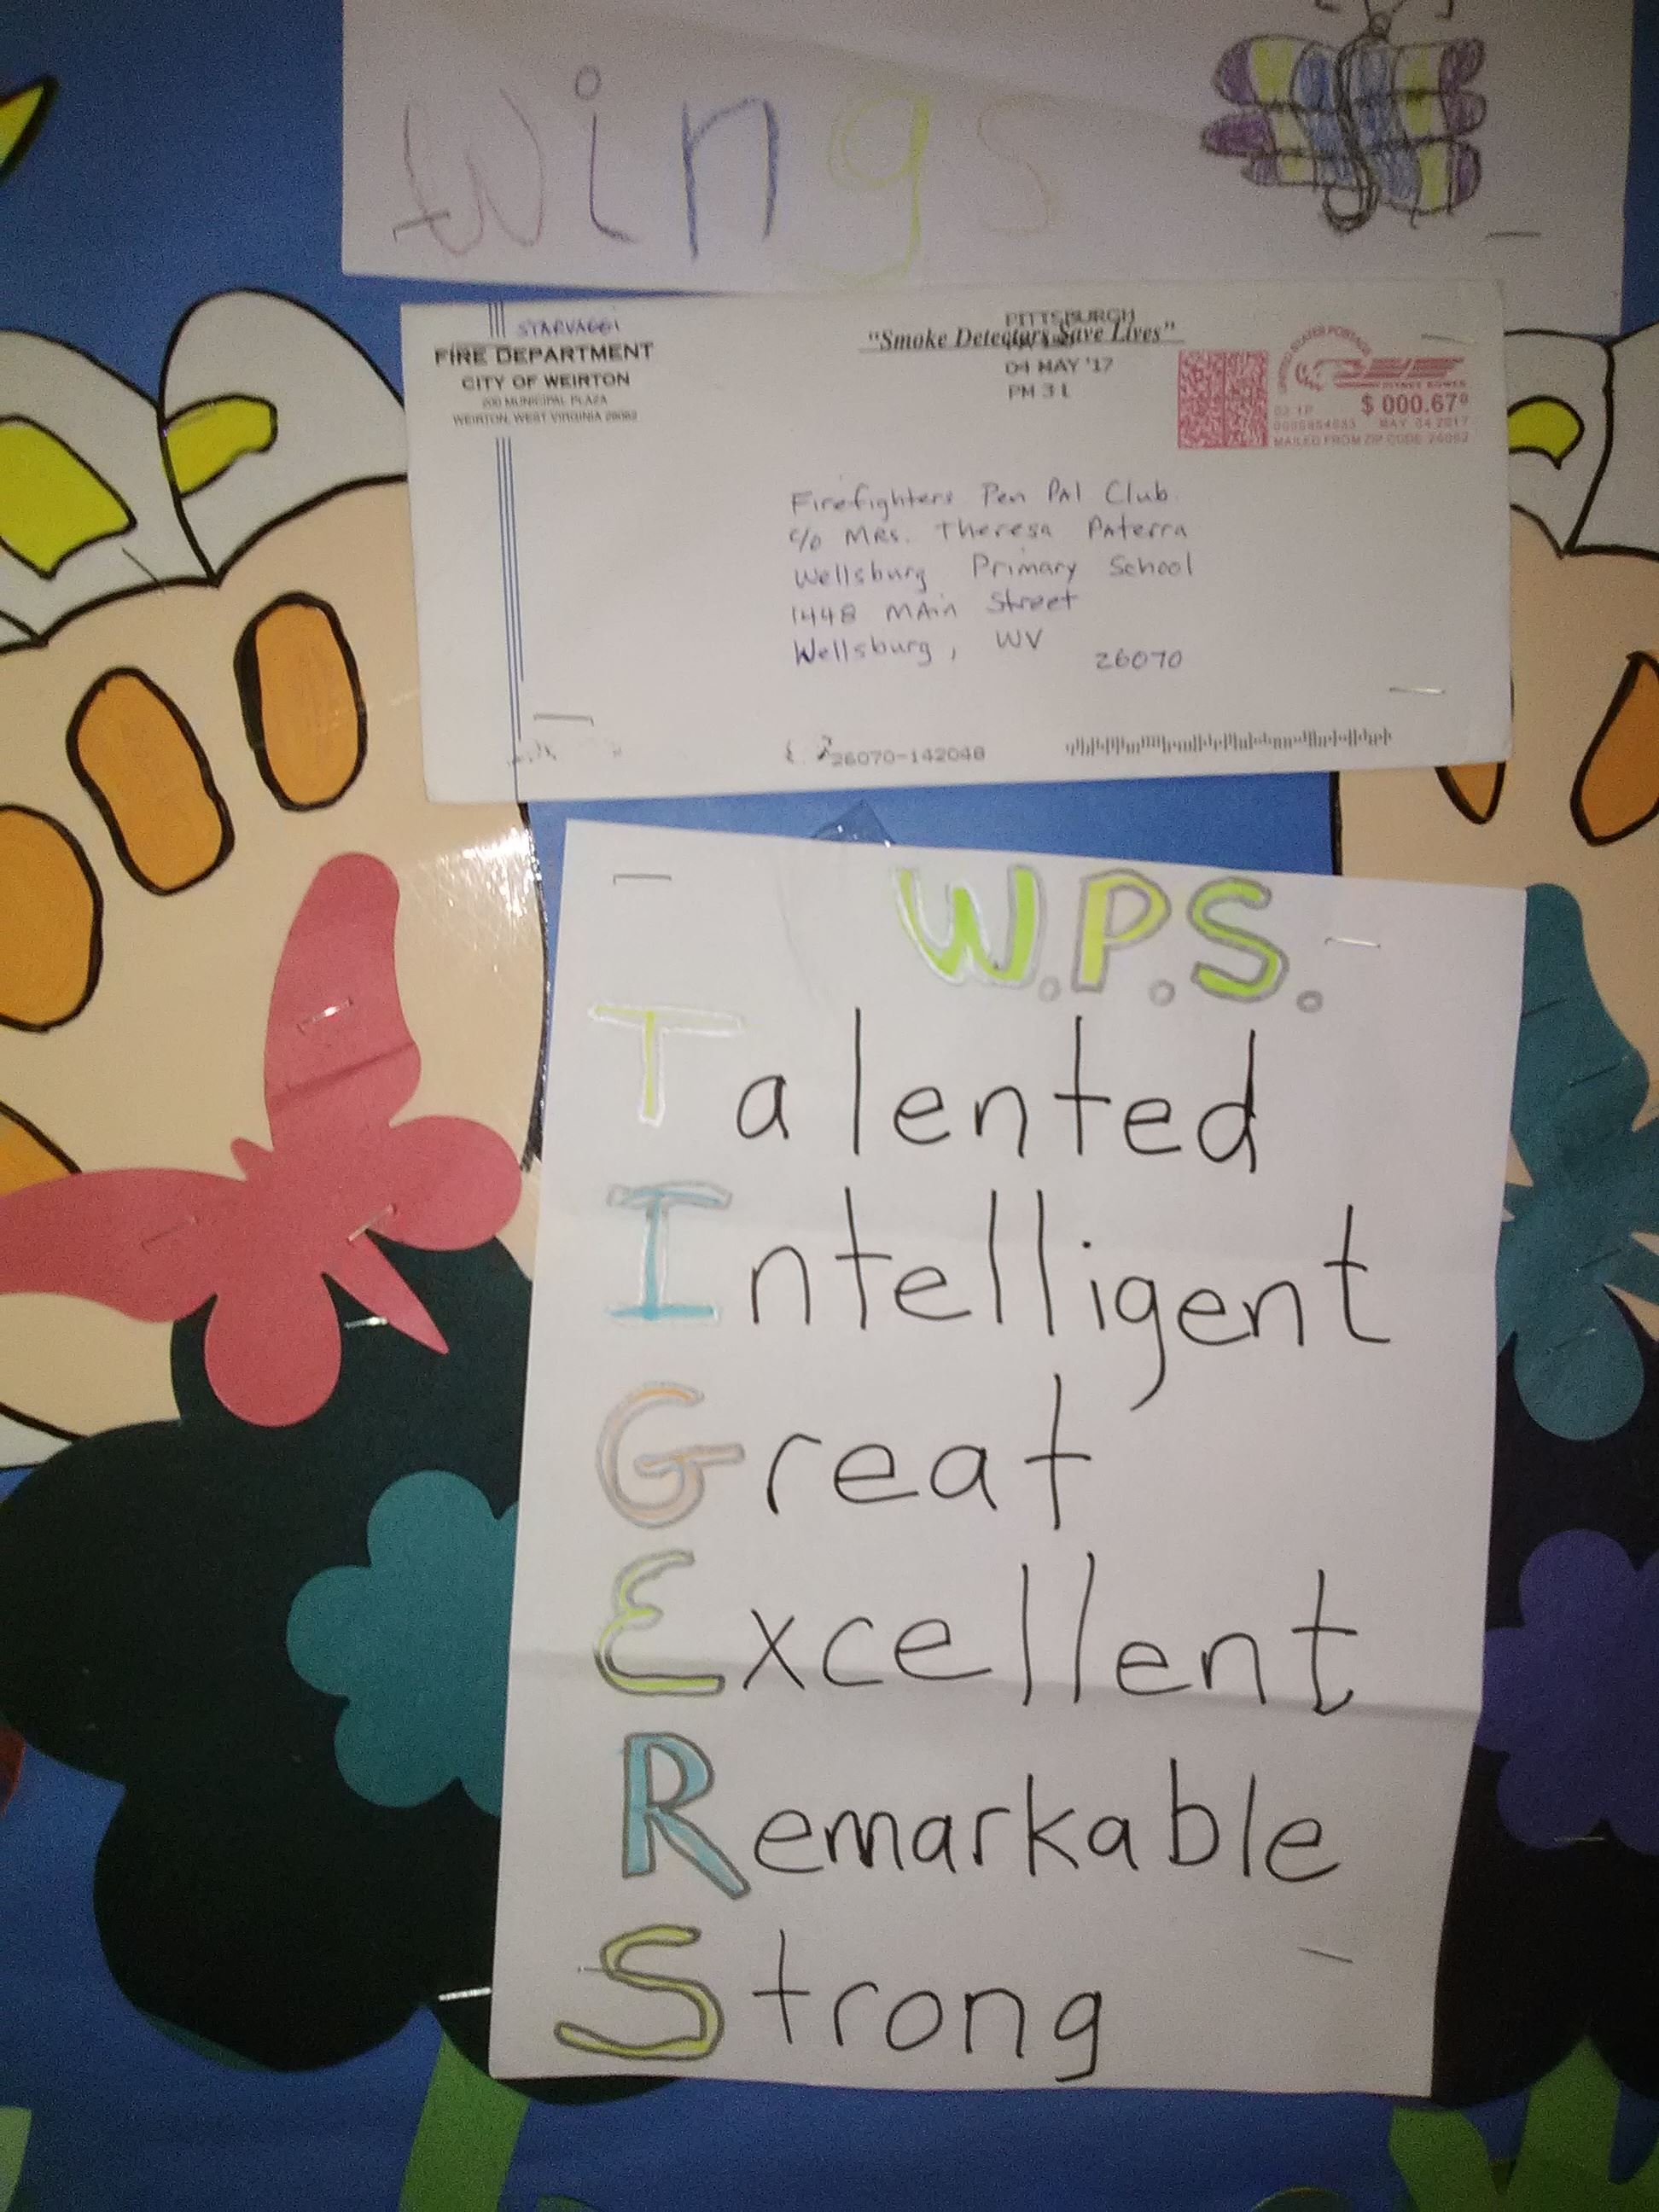 wings
STARVAGGI
FIRE DEPARTMENT
CITY OF WEIRTON
200 MUNICIPAL PLAZA
WEIRTON, WEST VIRGINIA 26062
PITTSBURGH
"Smoke Detectors Save Lives"
04 MAY '17
PM 3 L
UNITED STATES POSTAGE
PITNEY BOWES
02 1P $ 000.67⁰
MAY 04 2017
MAILED FROM ZIP CODE 26062
Firefighters Pen PAl Club
c/o MRs. Theresa PAterra
Wellsburg Primary School
1448 MAin Street
Wellsburg, WV 26070
26070-142048
W.P.S.
Talented
Intelligent
Great
Excellent
Remarkable
Strong